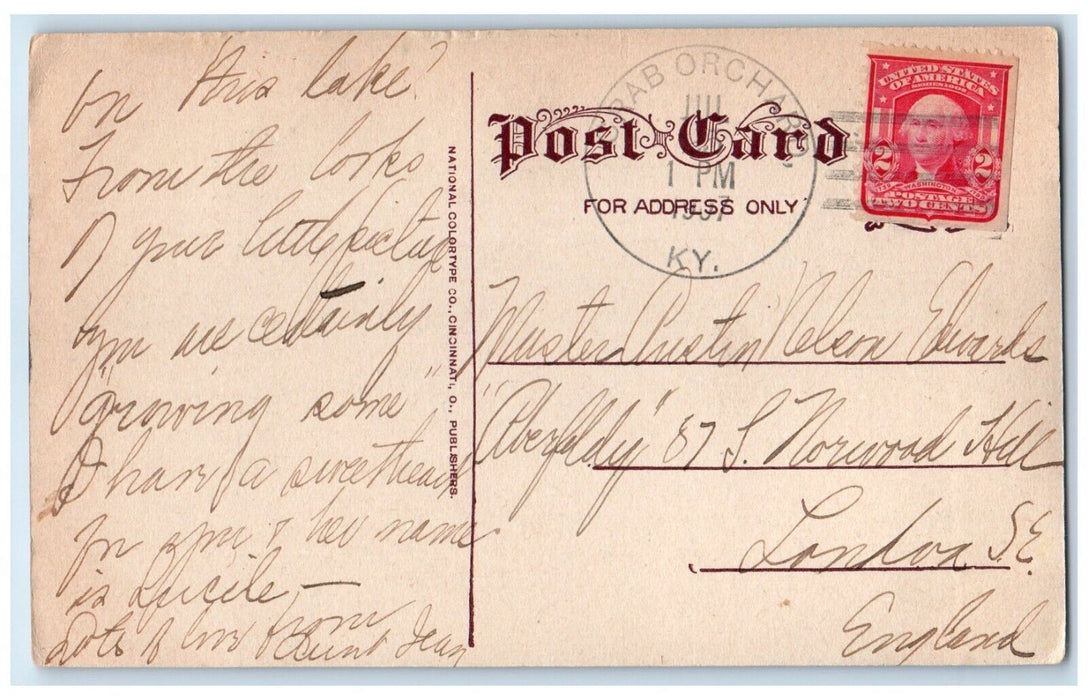 on this lake?
From the looks
of your little picture
you are certainly
"growing some"
I have a sweetheart
for you & her name
is Lucile —
Lots of love from
Aunt Jean
NATIONAL COLORTYPE CO., CINCINNATI, O., PUBLISHERS.
Post Card
FOR ADDRESS ONLY
CRAB ORCHARD
JUL
1 PM
1907
KY.
UNITED STATES
OF AMERICA
SERIES 1902
2 2
WASHINGTON
POSTAGE
TWO CENTS
Master Austin Nelson Edwards
"Aberfeldy" 87 S. Norwood Hill
London S.E.
England